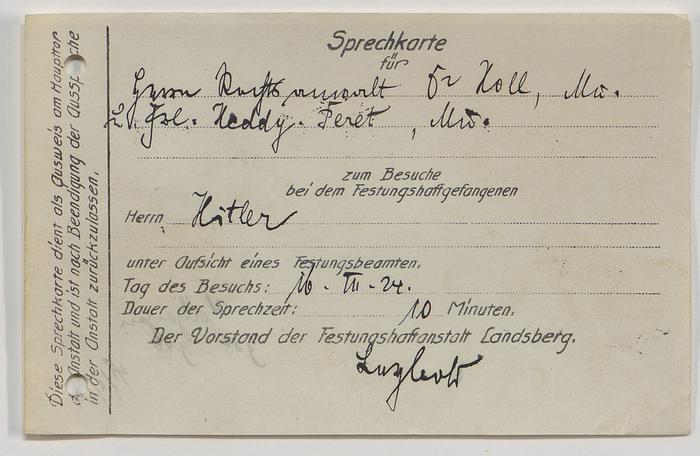 Sprechkarte
für
Herrn Rechtsanwalt Dr Holl, Mü.
Frl. Heddy. Feret, Mü.
zum Besuche
bei dem Festungshaftgefangenen
Herrn Hitler
unter Aufsicht eines Festungsbeamten.
Tag des Besuchs: 16. III. 24.
Dauer der Sprechzeit: 10 Minuten.
Der Vorstand der Festungshaftanstalt Landsberg.
Diese Sprechkarte dient als Ausweis am Haupttor
Anstalt und ist nach Beendigung der
in der Anstalt zurückzulassen.